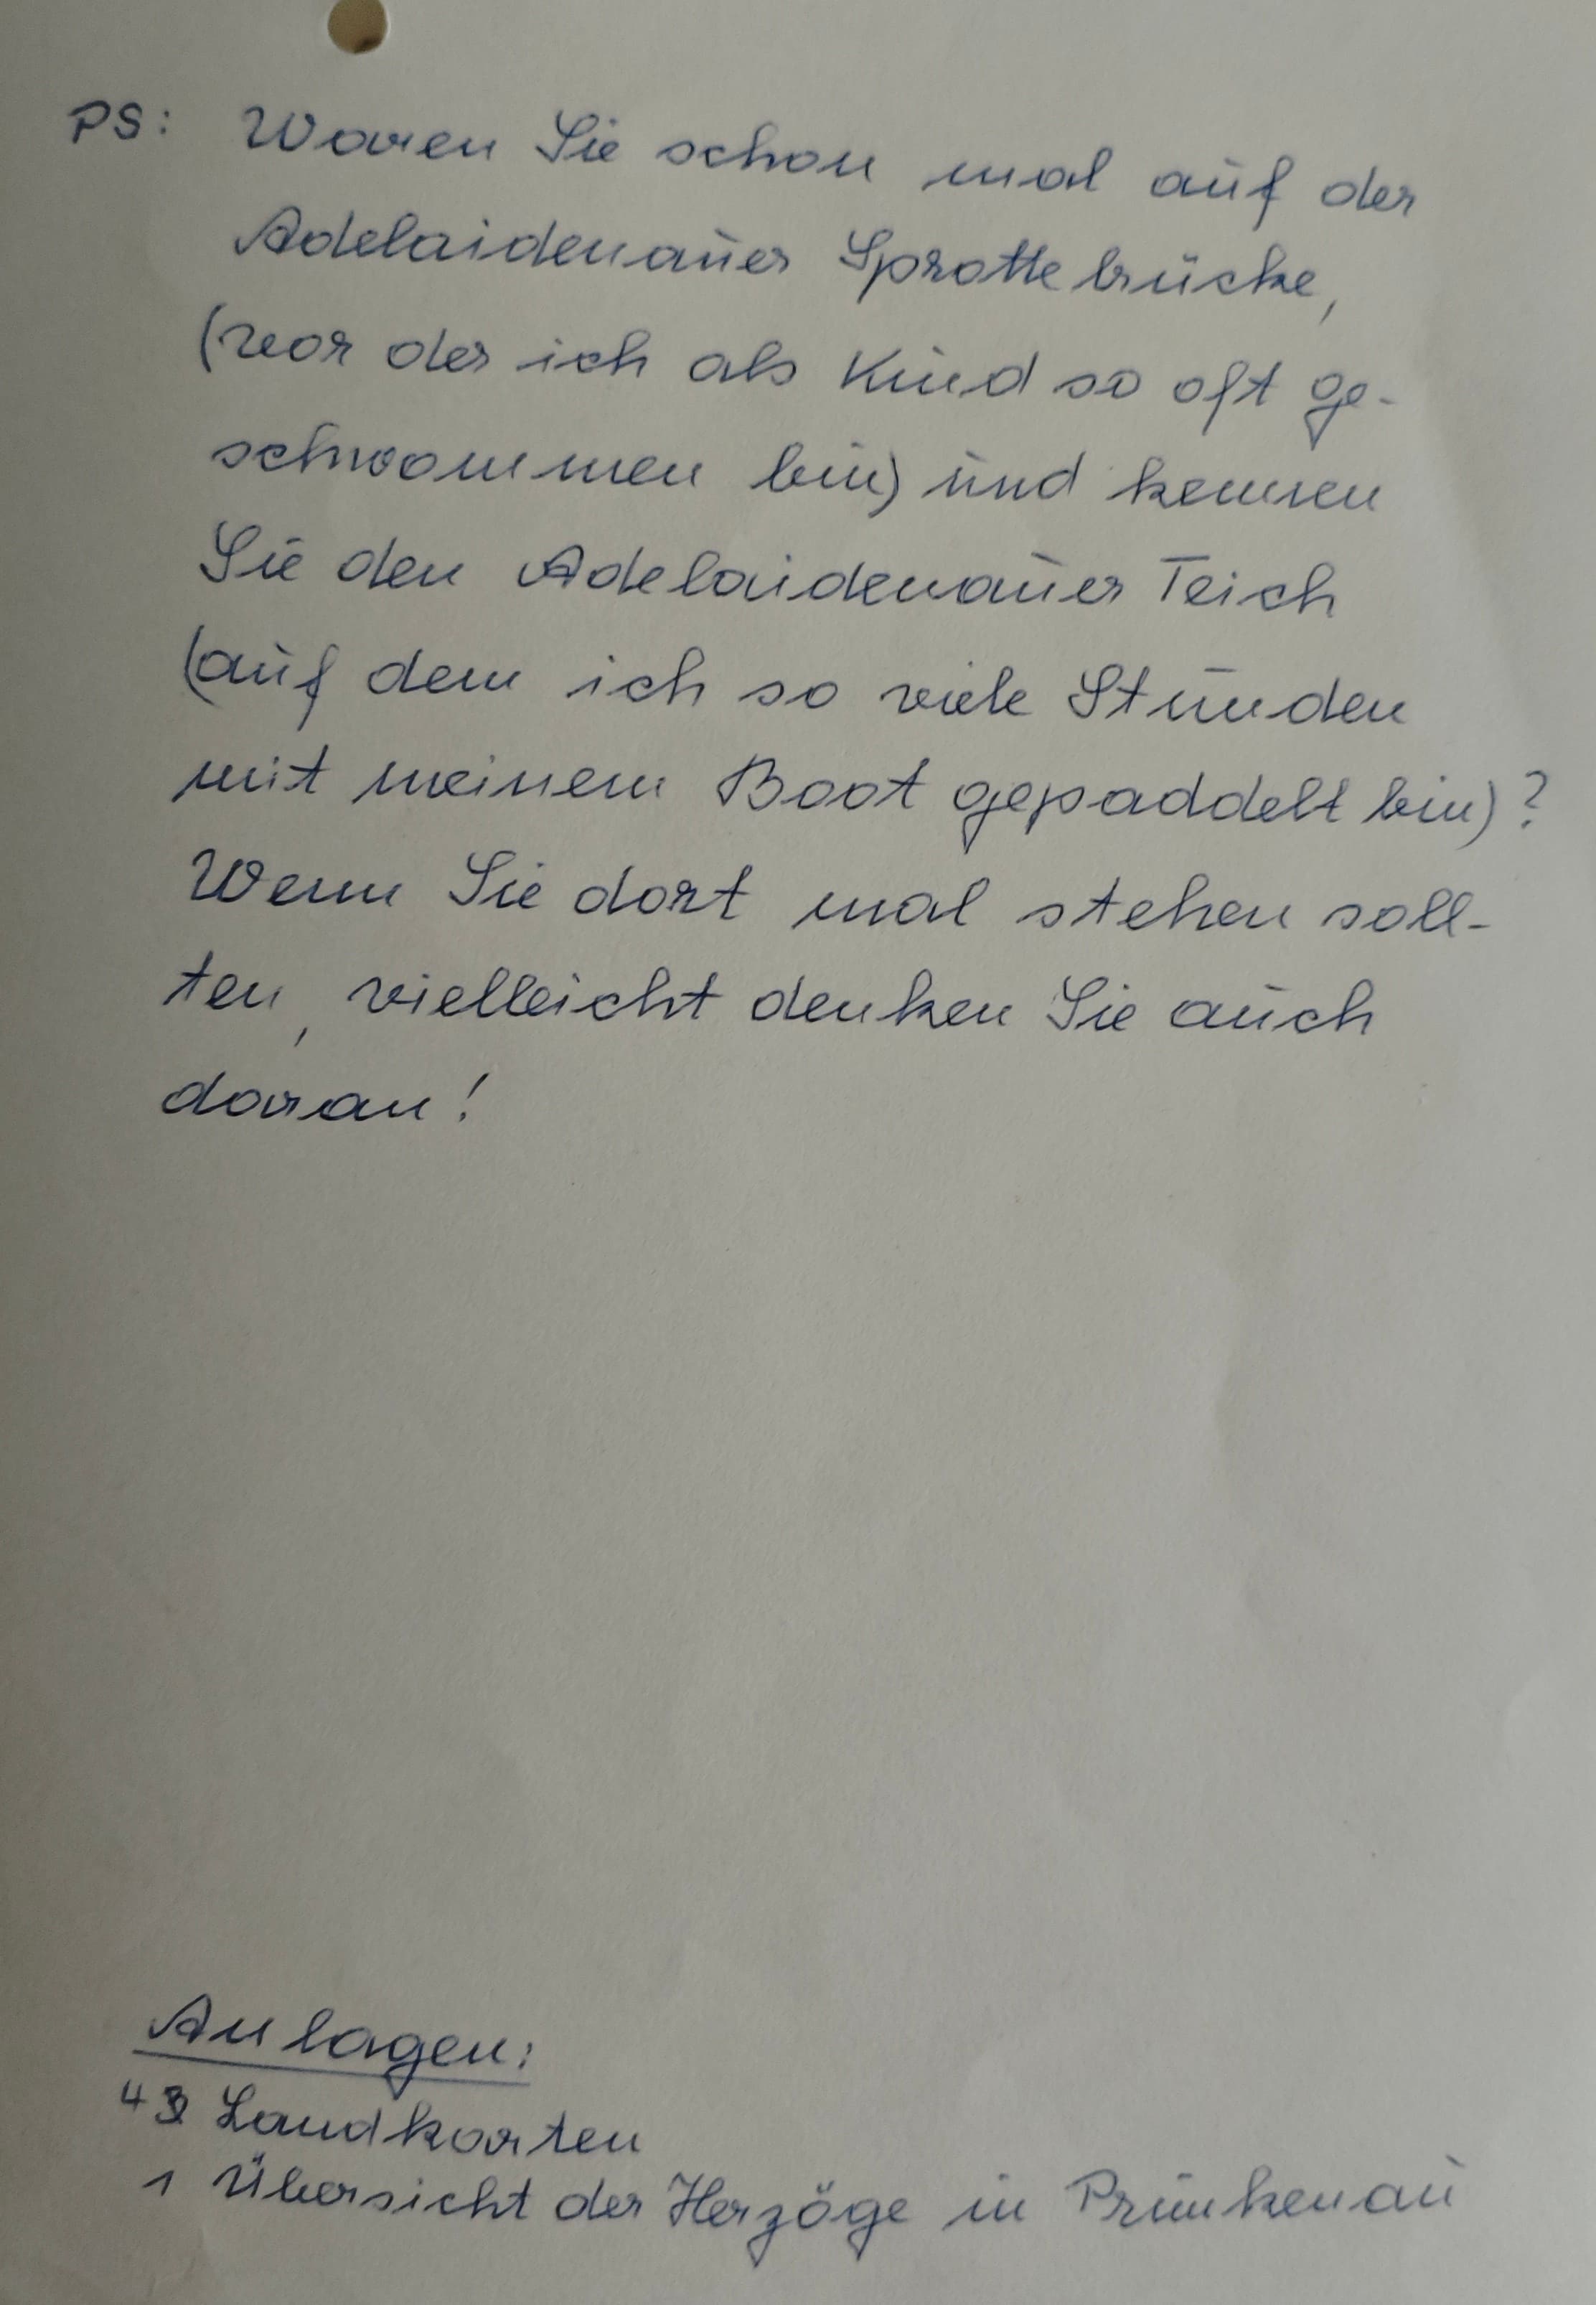 PS: Waren Sie schon mal auf der
Adelaidenauer Sprottebrücke,
(vor der ich als Kind so oft ge-
schwommen bin) und kennen
Sie den Adelaidenauer Teich
(auf dem ich so viele Stunden
mit meinem Boot gepaddelt bin)?
Wenn Sie dort mal stehen soll-
ten, vielleicht denken Sie auch
daran!
Anlagen:
4 Landkarten
1 Übersicht der Herzöge in Primkenau